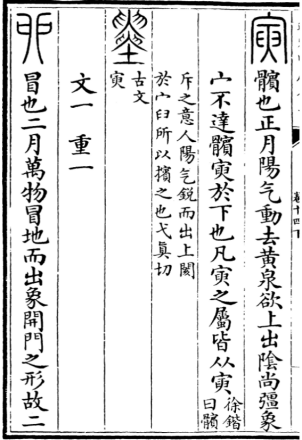 寅
髕也正月陽气動去黃泉欲上出陰尚彊象
宀不達髕寅於下也凡寅之屬皆从寅徐鍇曰髕
斥之意人陽气銳而出上閡
於宀臼所以擯之也弋真切
古文寅
文一 重一
卯
冒也二月萬物冒地而出象開門之形故二